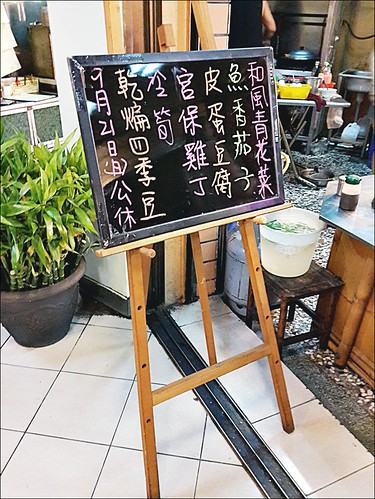 和風青花菜
魚香茄子
皮蛋豆腐
宮保雞丁
冷筍
乾煸四季豆
9月21日公休